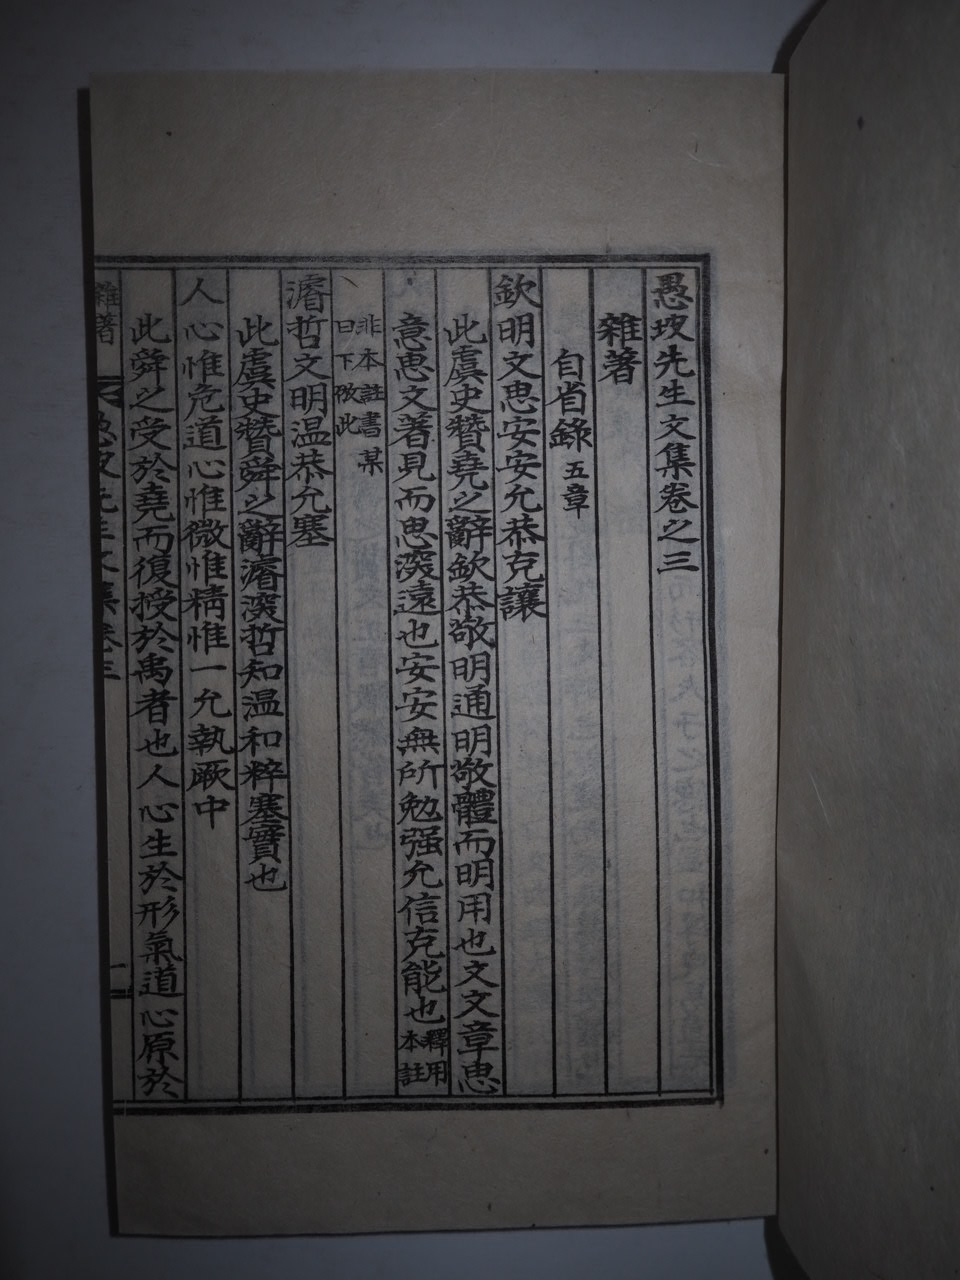 愚坡先生文集卷之三
雜著
自省錄 五章
欽明文思安安允恭克讓
此虞史贊堯之辭欽恭敬明通明敬體而明用也文文章思
意思文著見而思深遠也安安無所勉强允信克能也 釋用
本註
非本註書某
曰下倣此
濬哲文明温恭允塞
此虞史贊舜之辭濬深哲知温和粹塞實也
人心惟危道心惟微惟精惟一允執厥中
此舜之受於堯而復授於禹者也人心生於形氣道心原於
雜著
愚坡先生文集卷三